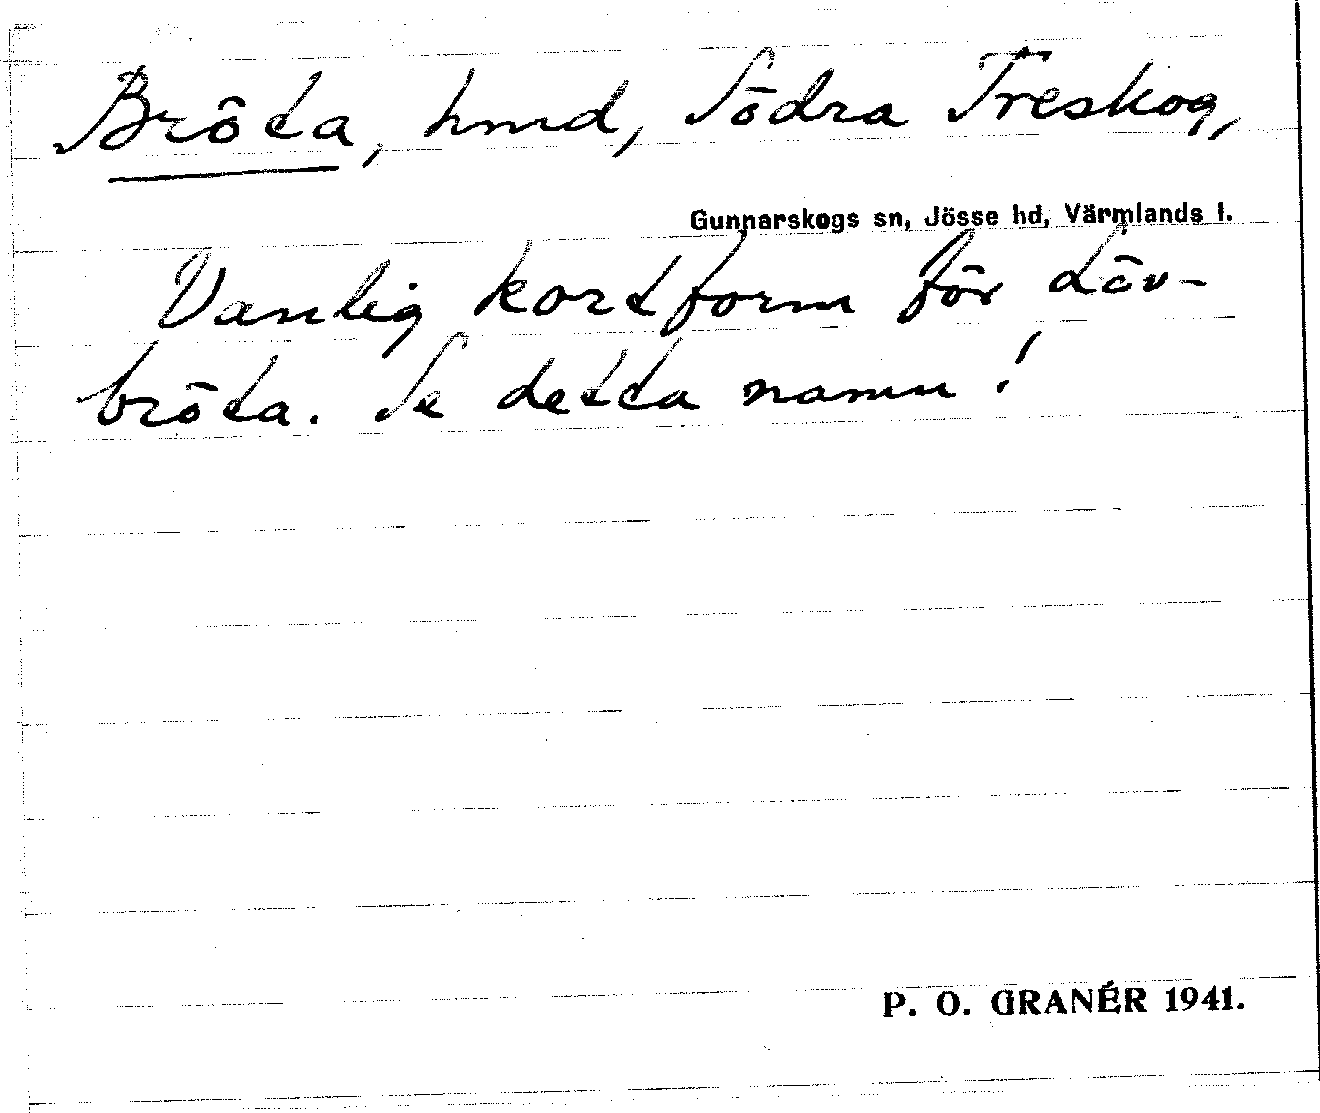 Bröta, hmd, Södra Treskog,
Gunnarskogs sn, Jösse hd, Värmlands l.
Vanlig kortform för Löv-
bröta. Se detta namn!
P. O. GRANÉR 1941.